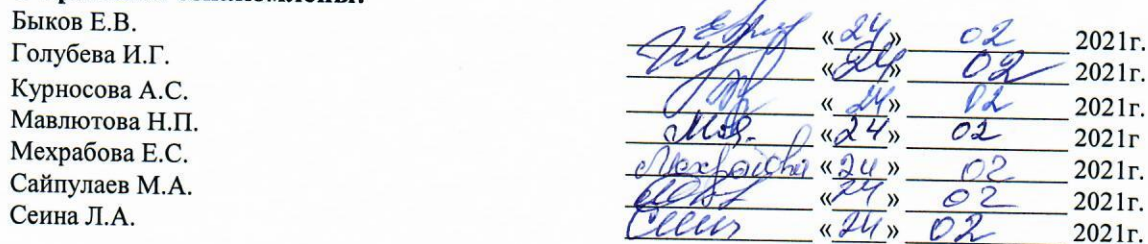 Быков Е.В. «24» 02 2021г.
Голубева И.Г. «24» 02 2021г.
Курносова А.С. «24» 02 2021г.
Мавлютова Н.П. «24» 02 2021г
Мехрабова Е.С. «24» 02 2021г.
Сайпулаев М.А. «24» 02 2021г.
Сеина Л.А. «24» 02 2021г.